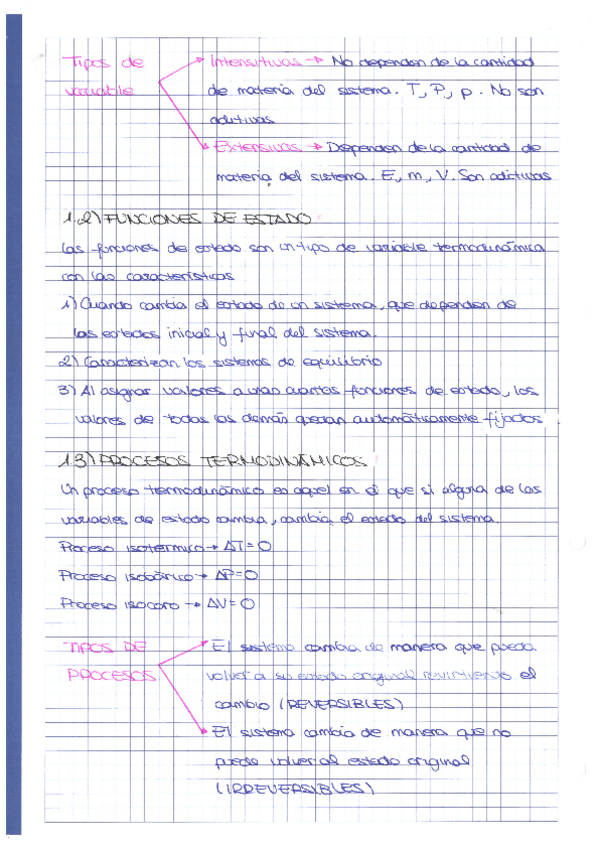 Tipos de variable
Intensitivas → No dependen de la cantidad
de materia del sistema. T, P, ρ. No son
aditivas
Extensivas → Dependen de la cantidad de
materia del sistema. E, m, V. Son adictivas
1.2) FUNCIONES DE ESTADO
Las funciones de estado son un tipo de variable termodinámica
con las características
1) Cuando cambia el estado de un sistema, que dependen de
los estados inicial y final del sistema.
2) Caracterizan los sistemas de equilibrio
3) Al asignar valores a unas cuantas funciones de estado, los
valores de todas las demás quedan automáticamente fijados
1.3) PROCESOS TERMODINÁMICOS
Un proceso termodinámico es aquel en el que si alguna de las
variables de estado cambia, cambia el estado del sistema.
Proceso isotérmico → ΔT = 0
Proceso isobárico → ΔP = 0
Proceso isocoro → ΔV = 0
TIPOS DE PROCESOS
El sistema cambia de manera que pueda
volver a su estado original revirtiendo el
cambio (REVERSIBLES)
El sistema cambia de manera que no
puede volver al estado original
(IRREVERSIBLES)